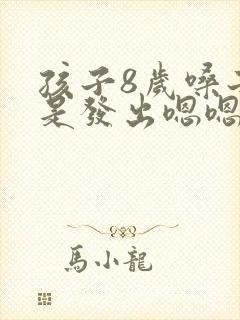 孩子8歲嗓子
是發出嗯嗯
馬小龍